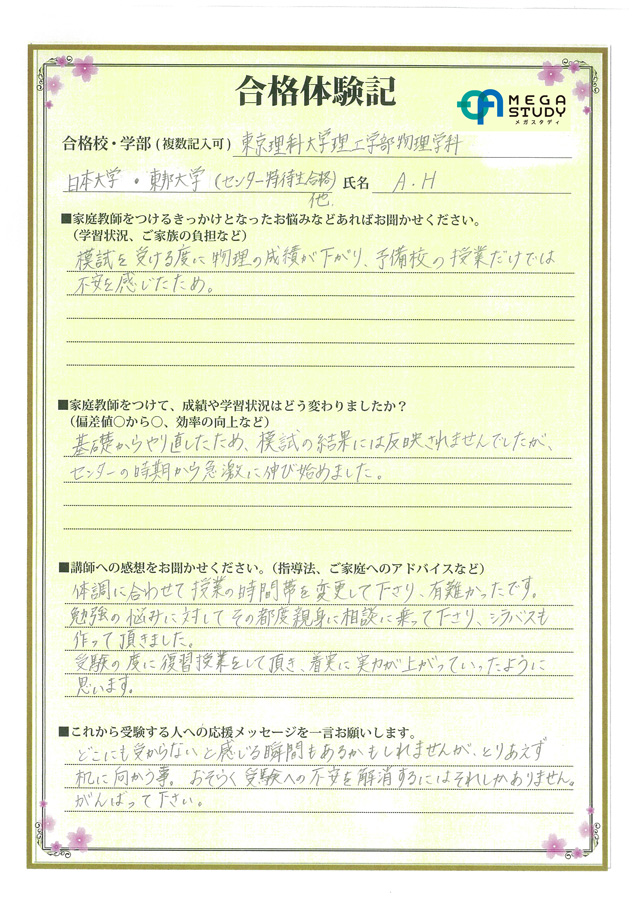 合格体験記
MEGA
STUDY
メガスタディ
合格校・学部(複数記入可) 東京理科大学理工学部物理学科
日本大学・東邦大学(センター特待生合格) 氏名 A.H
他.
■家庭教師をつけるきっかけとなったお悩みなどあればお聞かせください。
(学習状況、ご家族の負担など)
模試を受ける度に物理の成績が下がり、予備校の授業だけでは
不安を感じたため。
■家庭教師をつけて、成績や学習状況はどう変わりましたか？
(偏差値〇から〇、効率の向上など)
基礎からやり直したため、模試の結果には反映されませんでしたが、
センターの時期から急激に伸び始めました。
■講師への感想をお聞かせください。(指導法、ご家庭へのアドバイスなど)
体調に合わせて授業の時間帯を変更して下さり、有難かったです。
勉強の悩みに対してその都度親身に相談に乗って下さり、シラバスも
作って頂きました。
受験の度に復習授業をして頂き、着実に実力が上がっていったように
思います。
■これから受験する人への応援メッセージを一言お願いします。
どこにも受からないと感じる瞬間もあるかもしれませんが、とりあえず
机に向かう事。おそらく受験への不安を解消するにはそれしかありません。
がんばって下さい。